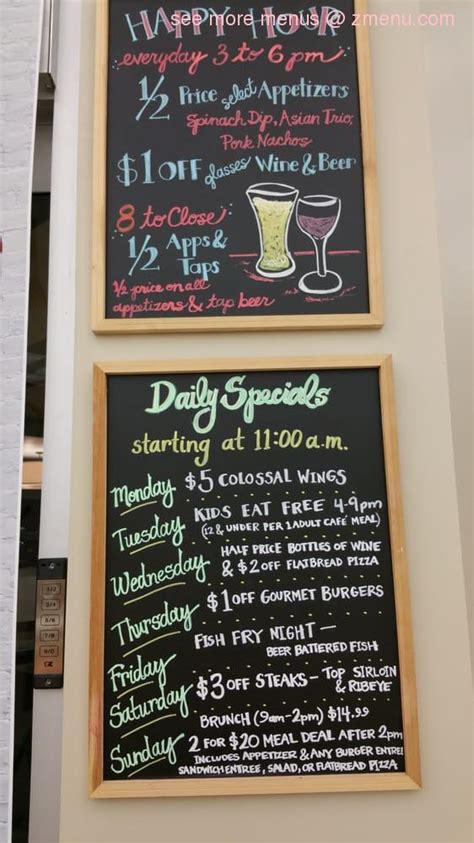 see more menus @ zmenu.com
HAPPY HOUR
everyday 3 to 6 pm
1/2 Price select Appetizers
Spinach Dip, Asian Trio,
Pork Nachos
$1 OFF glasses Wine & Beer
8 to Close
1/2 Apps &
Taps
1/2 price on all
appetizers & tap beer
Daily Specials
starting at 11:00 a.m.
Monday $5 COLOSSAL WINGS
Tuesday KIDS EAT FREE 4-9pm
(12 & UNDER PER 1 ADULT CAFÉ MEAL)
Wednesday HALF PRICE BOTTLES OF WINE
& $2 OFF FLATBREAD PIZZA
Thursday $1 OFF GOURMET BURGERS
Friday FISH FRY NIGHT —
BEER BATTERED FISH
Saturday $3 OFF STEAKS - TOP SIRLOIN
& RIBEYE
Sunday BRUNCH (9am-2pm) $14.99
2 FOR $20 MEAL DEAL AFTER 2pm
INCLUDES APPETIZER & ANY BURGER ENTREE
SANDWICH ENTREE, SALAD, OR FLATBREAD PIZZA
1/2
3/4
5/6
7/8
9/0